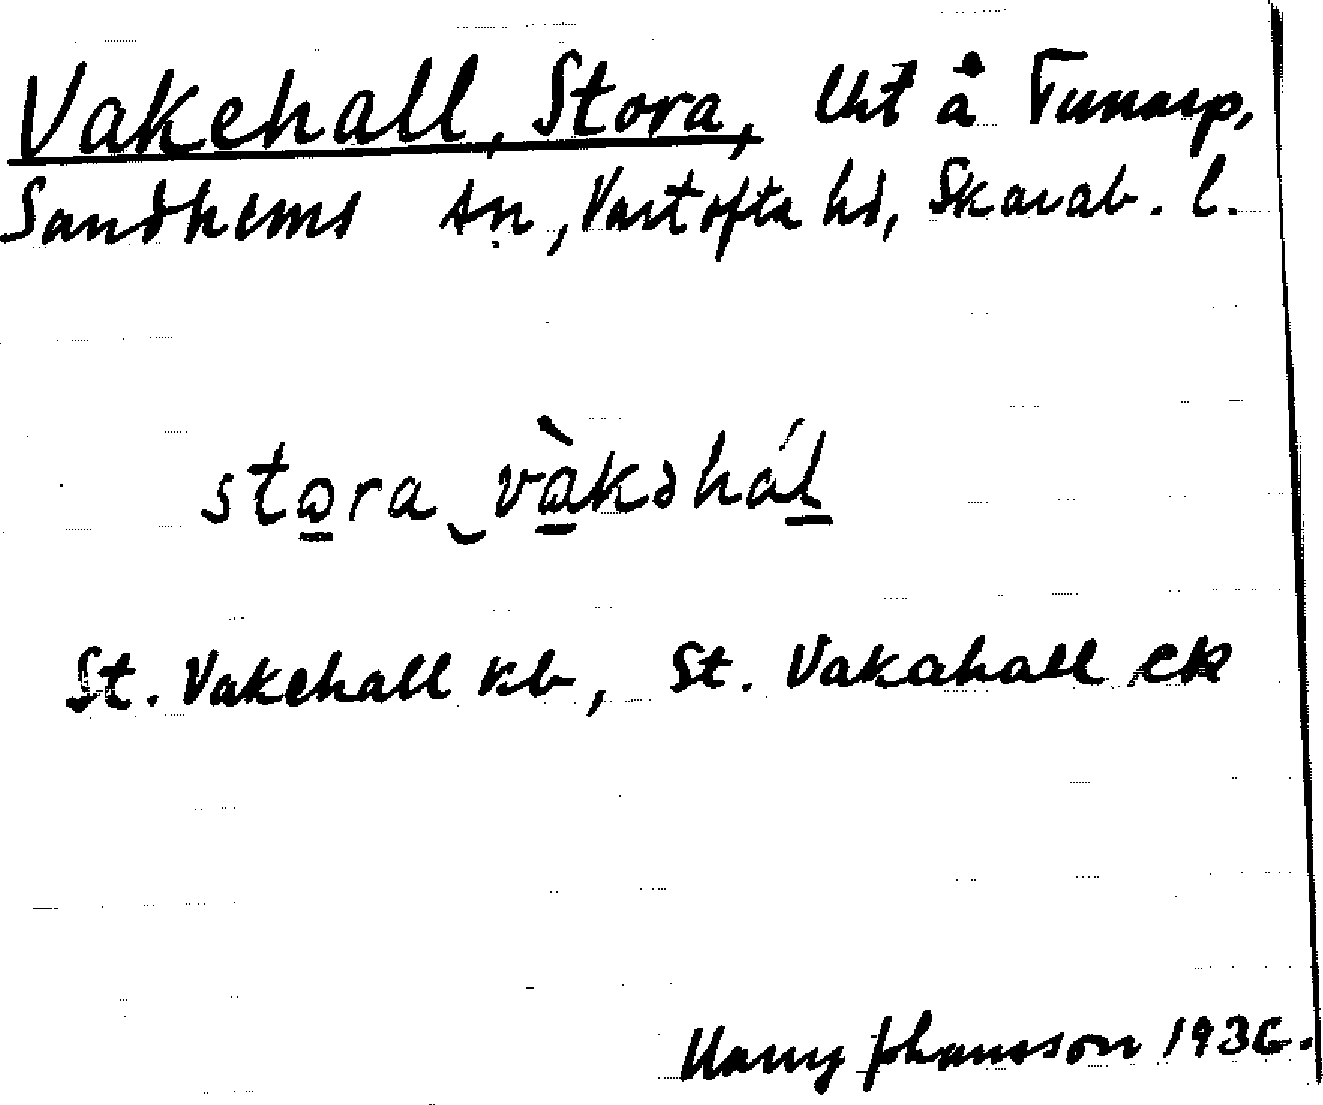 Vakehall, Stora, lht å Tunarp,
Sandhems sn, Vartofta hd, Skarab. l.
stora vàkəhál
St. Vakehall kb, St. Vakahall ek
Harry Johansson 1936.